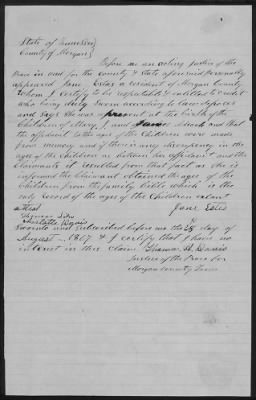 State of Tennessee
County of Morgan
Before as an acting justice of the
Peace in and for the county & State aforesaid Personally
appeared Jane Estes a resident of Morgan County
whom I certify to be reputable & entitled to credit
who being duly sworn according to law deposes
and says she was present at the birth of the
Children of Mary J. and and that
the affidavit to the ages of the Children were made
from memory and if there is any discrepency in the
age of the Children as between her affidavit and the
claimants it resulted from that fact as she is
informed the Claimant obtained the ages of the
Children from the family bible which is the
only record of the ages of the Children extant
attest
Jane Estes
Charlotte Davis
Sworn to and subscribed before me the 28 day of
August 1867 & I certify that I have no
interest in this claim Thomas H. Davis
Justice of the Peace for
Morgan County Tenn